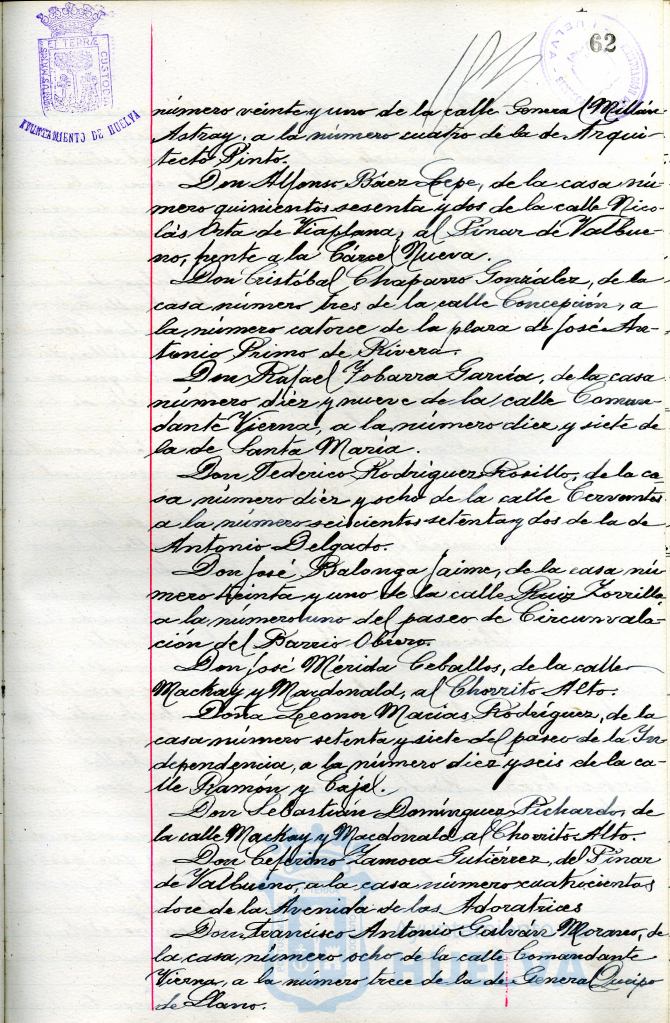 62
AYUNTAMIENTO DE HUELVA
número veinte y uno de la calle General Millán
Astray, a la número cuatro de la de Arqui-
tecto Pinto.
Don Alfonso Báez Lepe, de la casa nú-
mero quinientos sesenta y dos de la calle Nico-
lás Orta de Viaplana, al Pinar de Valbue-
no, frente a la Cárcel Nueva.
Don Cristóbal Chaparro González, de la
casa número tres de la calle Concepción, a
la número catorce de la plaza de José An-
tonio Primo de Rivera.
Don Rafael Tobarra García, de la casa
número diez y nueve de la calle Coman-
dante Vierna, a la número diez y siete de
la de Santa María.
Don Federico Rodríguez Rosillo, de la ca-
sa número diez y ocho de la calle Cervantes
a la número seiscientos setenta y dos de la de
Antonio Delgado.
Don José Balonga Jaime, de la casa nú-
mero treinta y uno de la calle Ruiz Zorrilla
a la número uno del paseo de Circunvala-
ción del Barrio Obrero.
Don José Mérida Ceballos, de la calle
Mackay y Macdonald, al Chorrito Alto.
Doña Leonor Macias Rodríguez, de la
casa número setenta y siete del paseo de la In-
dependencia, a la número diez y seis de la ca-
lle Ramón y Cajal.
Don Sebastián Domínguez Pichardo, de
la calle Mackay y Macdonald al Chorrito Alto.
Don Ceferino Zamora Gutiérrez, del Pinar
de Valbueno, a la casa número cuatrocientos
doce de la Avenida de las Adoratrices
Don Francisco Antonio Galván Moraño, de
la casa número ocho de la calle Comandante
Vierna, a la número trece de la de General Queipo
de Llano.
HUELVA